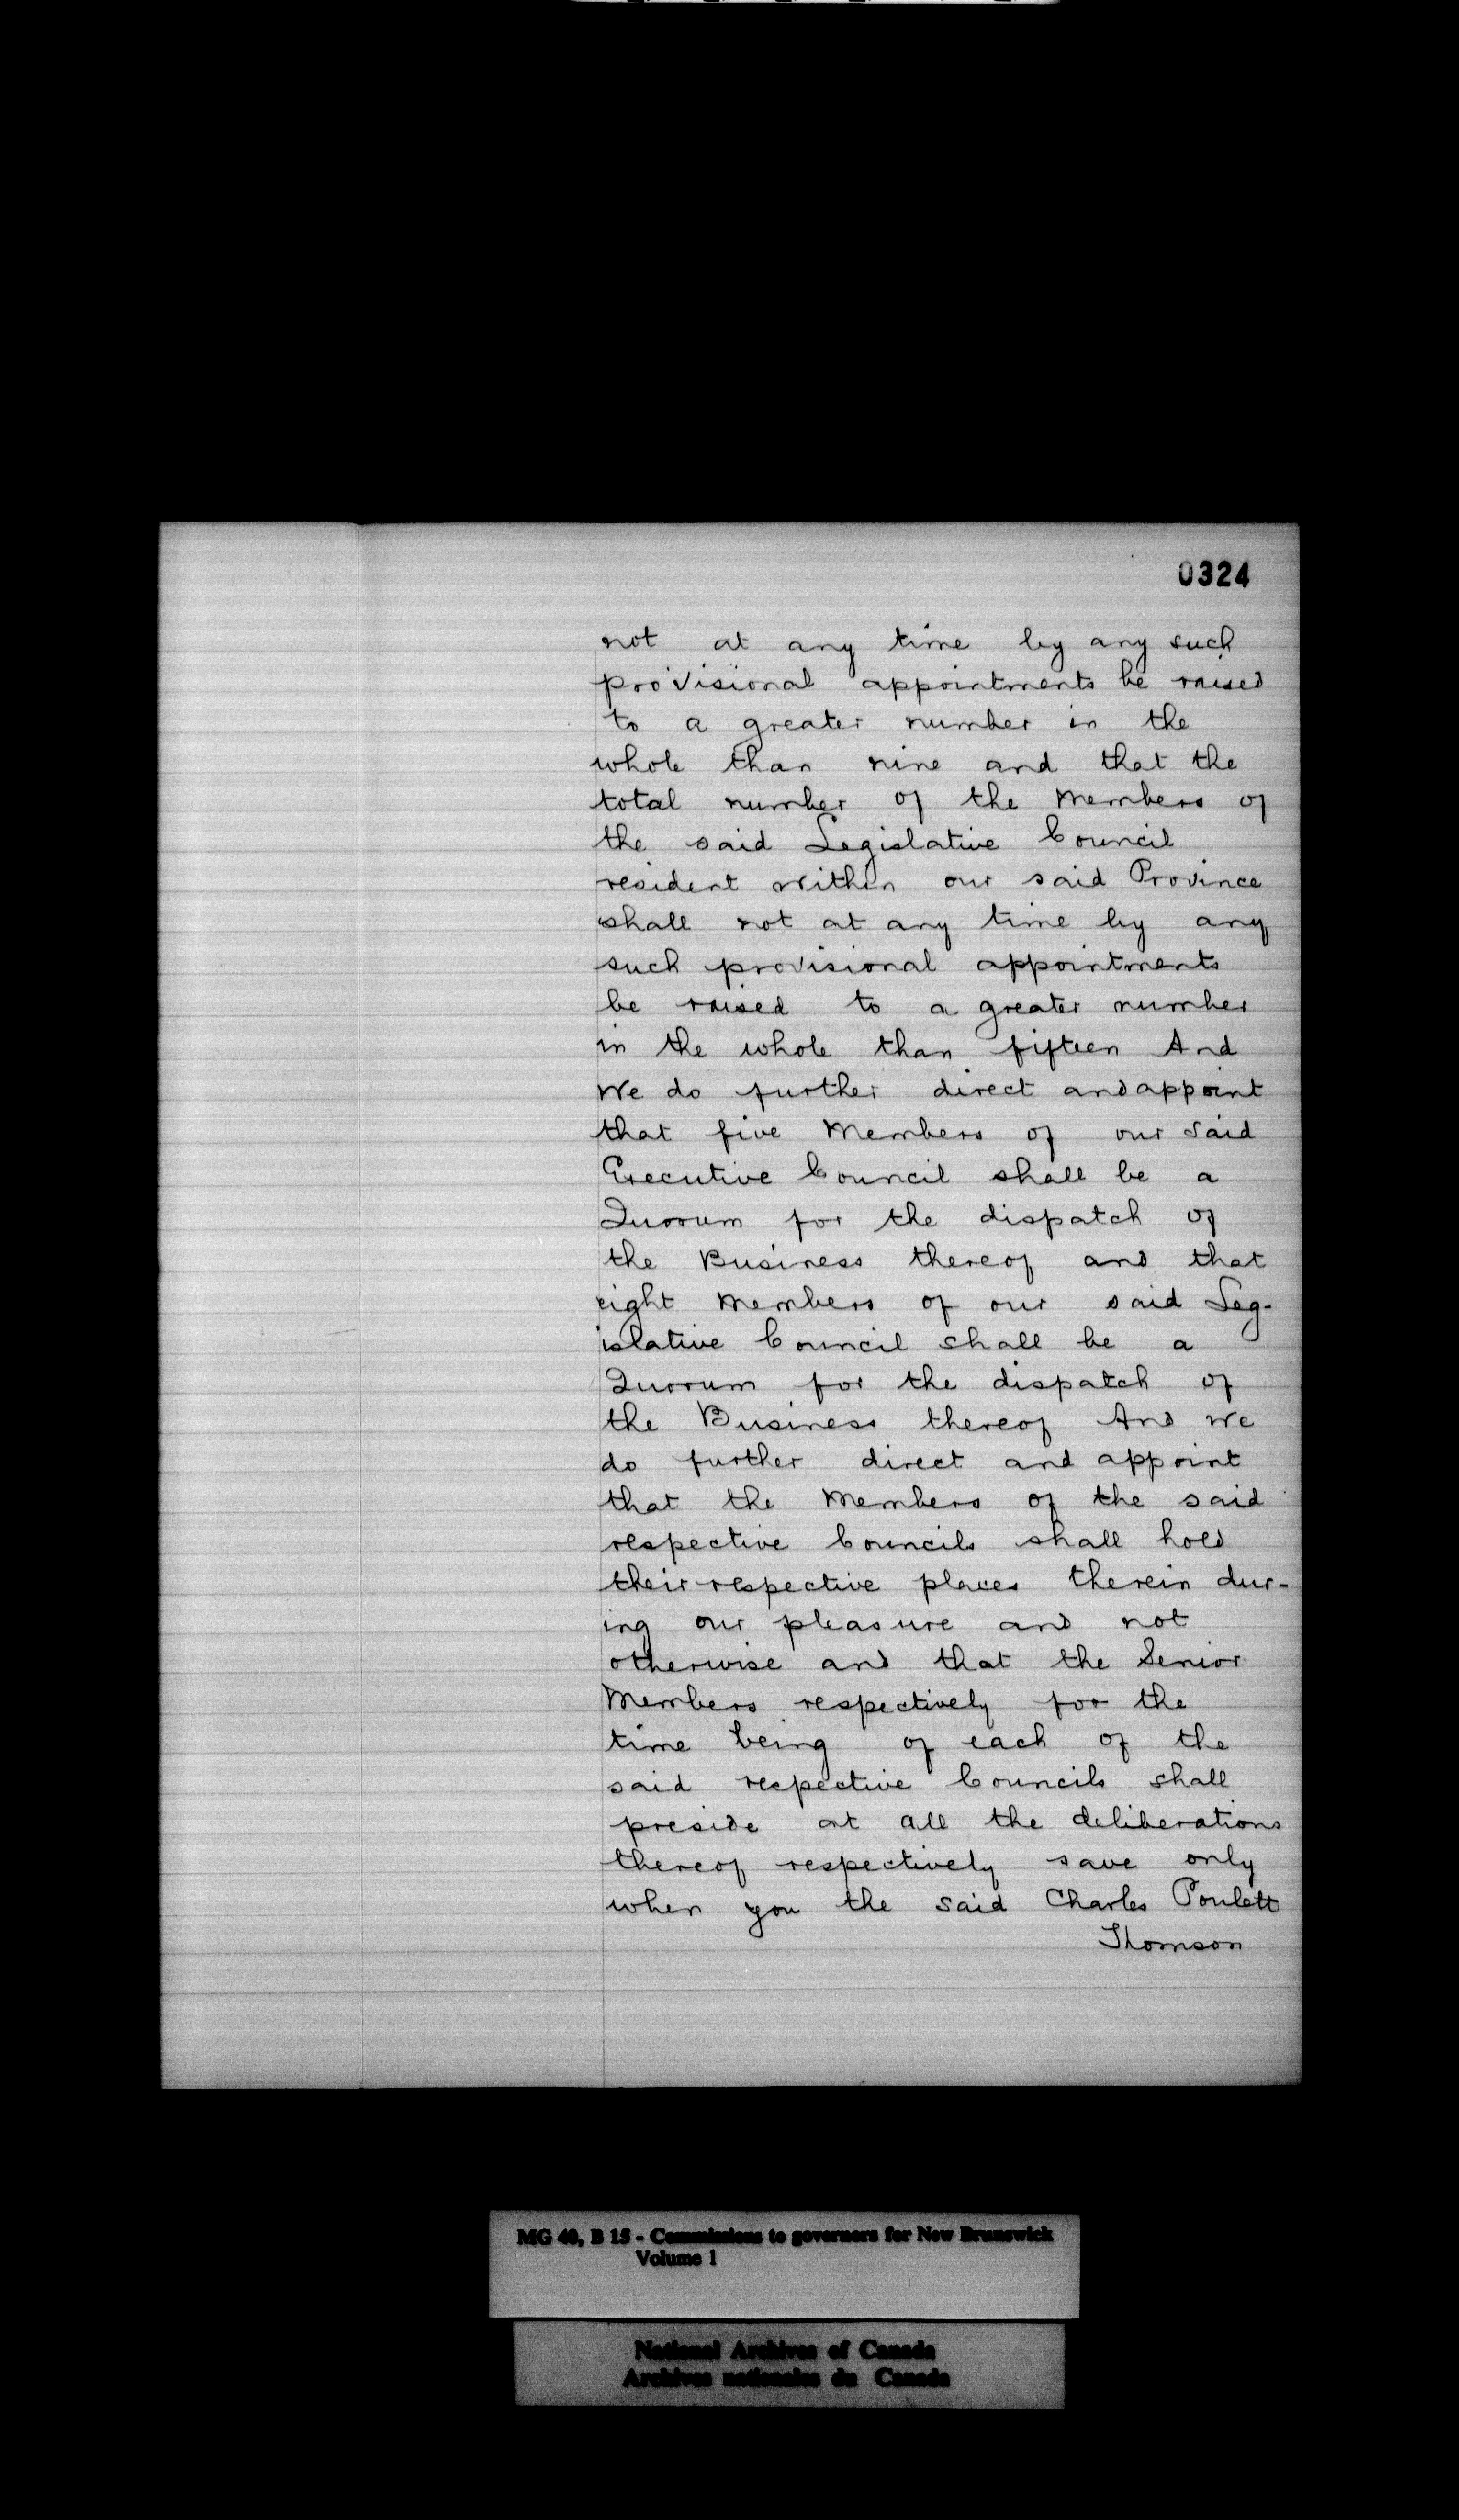 0324
not at any time by any such
provisional appointments be raised
to a greater number in the
whole than nine and that the
total number of the Members of
the said Legislative Council
resident within our said Province
shall not at any time by any
such provisional appointments
be raised to a greater number
in the whole than fifteen And
We do further direct and appoint
that five Members of our said
Executive Council shall be a
Quorum for the dispatch of
the Business thereof and that
eight Members of our said Leg-
islative Council shall be a
Quorum for the dispatch of
the Business thereof And We
do further direct and appoint
that the Members of the said
respective Councils shall hold
their respective places therein dur-
ing our pleasure and not
otherwise and that the Senior
Members respectively for the
time being of each of the
said respective Councils shall
preside at all the deliberations
thereof respectively save only
when you the said Charles Poulett
Thomson
MG 40, B 15 - Commissions to governors for New Brunswick
Volume 1
National Archives of Canada
Archives nationales du Canada